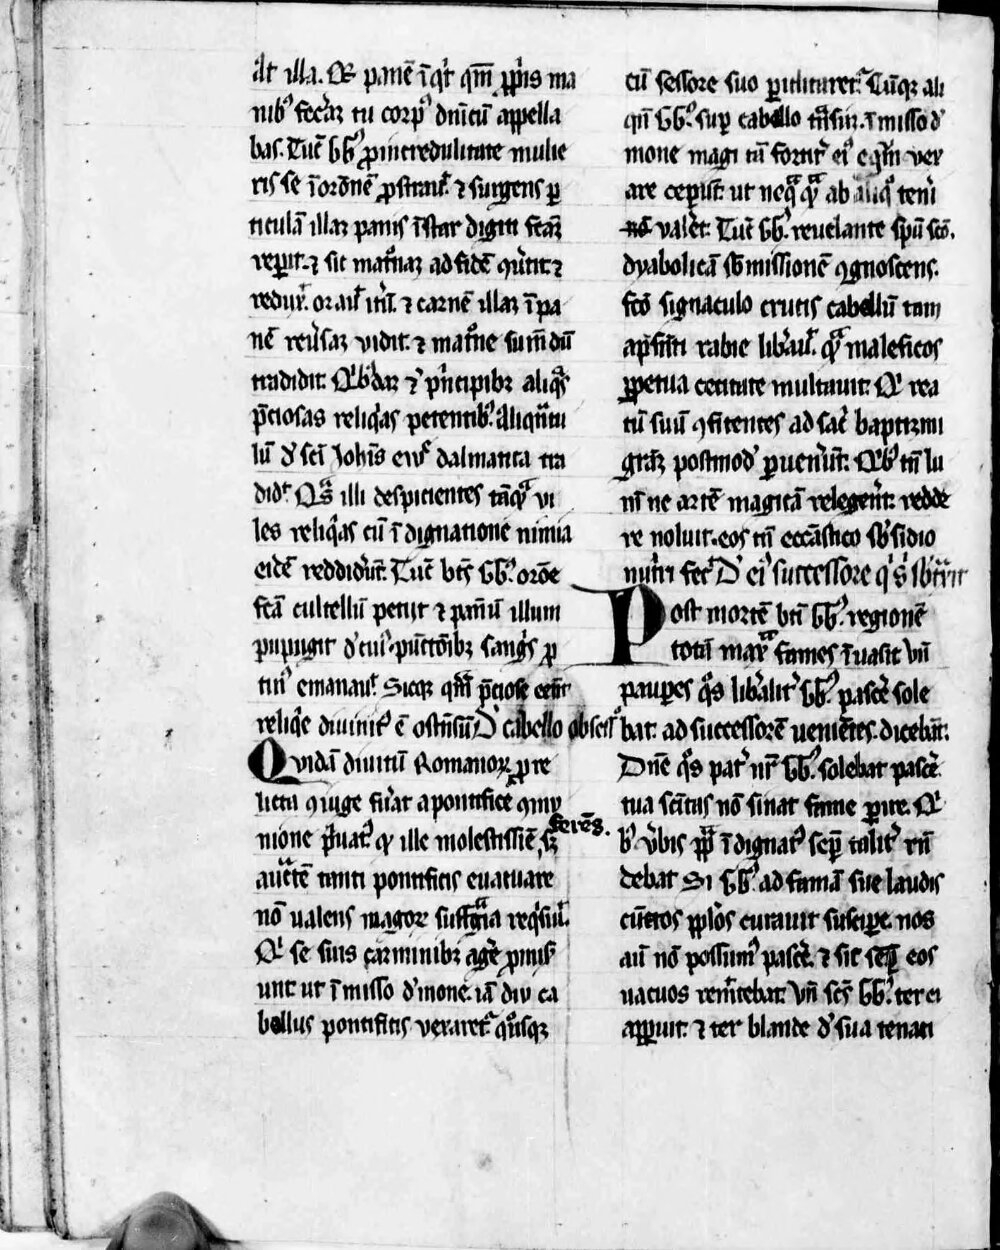 At illa. Qr panē ī qͥt qm̄ ꝓp̄iis ma
nibꝰ fecᷓaꝫ tu corpꝰ dn̄icū appella
bas. Tūc Gḡ. ꝓ incredulitate mulie
ris se ī orōnē ꝓstrauͥ. ⁊ surgens ꝑ
ticulā illaꝫ panis īstar digiti fc̄aꝫ
reꝑit. ⁊ sic matᷓnaꝫ ad fidē ꝯu̾tit. ⁊
rediit. orauͥ itͤū. ⁊ carnē illaꝫ ī pa
nē reu̾saꝫ vidit. ⁊ matᷓne sum̄dū
tradidit.
p̄ciosas reliqͥas petentibꝰ. Aliqn̄tu
lū de sc̄i Joh̄is euͣ dalmatica tra
didͭ. Qᷓ illi despicientes tāqᷓ vi
les reliqͥas cū īdignatione nimia
eidē reddid̾ūt. Tūc bt̄s Gḡ. orōe
fc̄a cultellū petiit ⁊ pannū illum
pupugit de cuiꝰ pūctōibꝫ sangͥs ꝓ
tinꝰ emanauͭ. Sicqꝫ qᷓm p̄ciose eēnt
reliqͥe diuinitꝰ ē ostn̄sū D̾ cabello obsesso
Qvidā diuitū Romanoꝝ ꝓ re
licta ꝯiuge fu̾at a pontifice ꝯmu
nione p̄uatꝰ qd̾ ille molestissīe ferēs. sꝫ
auctᷓtē tanti pontificis euacuare
nō ualens magoꝝ suffᷓgia reqͥsiuͥ.
Qͥ se suis carminibꝫ age̾ ꝓmis̾
unt ut īmisso demone. iā diu ca
bellus pontificis vexaretᷣ qͦusqꝫ
cū sessore suo ꝑiclitaretᷣ. Cūqꝫ ali
qn̄ Gḡ. suꝑ cabello tᷓnsir. ⁊ misso d̾
mone magi tā fortitͬ eiꝰ eqͣm vex
are ceper̄t. ut neqᷓqᷓ ab aliqͦ teni
valet. Tūc Gḡ. reuelante spū sc̄o.
dyabolicā īmissionē ꝯgnoscens.
fc̄o signaculo crucis cabellū tam
a p̄sn̄ti rabie lib̾auͥ. qᷓ maleficos
ꝑpetua cecitate multauit. Qͥ rea
tū suū ꝯfitentes ad sac̾ baptizmi
grᷓaꝫ postmodͫ ꝑuen̾ūt. Qͥbꝰ tn̄ lu
mē ne artē magicā relegeret. redde
re noluit. eos tn̄ eccᷓastico s̄bsidio
nut̾ri fecͭ D̾ eiꝰ successore
Post mortē bt̄i Gḡ. regionē
totā maxᷓ fames īuasit vn̄
pauꝑes qͦs lib̾alitͬ Gḡ. pasce̾ sole
bat. ad successorē uenientes. dicebāt.
Dn̄e qͦs pat̾ nr̄ Gḡ. solebat pasce̾
tua sc̄itas nō sinat fame ꝑire. Qͥ
bꝰ v̾bis pp̄ īdignatꝰ semꝑ talitͬ rn̄
debat Si Gḡ. ad famā sue laudis
cūctos ppl̾os curauit suscipe̾. nos
aū nō possumꝰ pasce̾. ⁊ sic semꝑ eos
uacuos remittebat. Vn̄ sc̄s Gḡ. ter ei
apparuit. ⁊ ter blande de sua tenaci